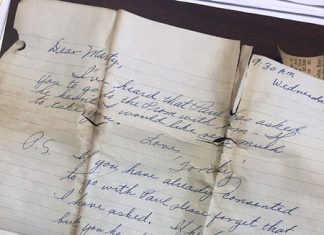 9:30 A.M.
Wednesday
Dear Marty,
I've heard that Paul has asked
you to go to the Prom with him - If
he hasn't, I would like very much
to take you.
Love,
P.S. If you have already consented
to go with Paul please forget that
I have asked. If
but you